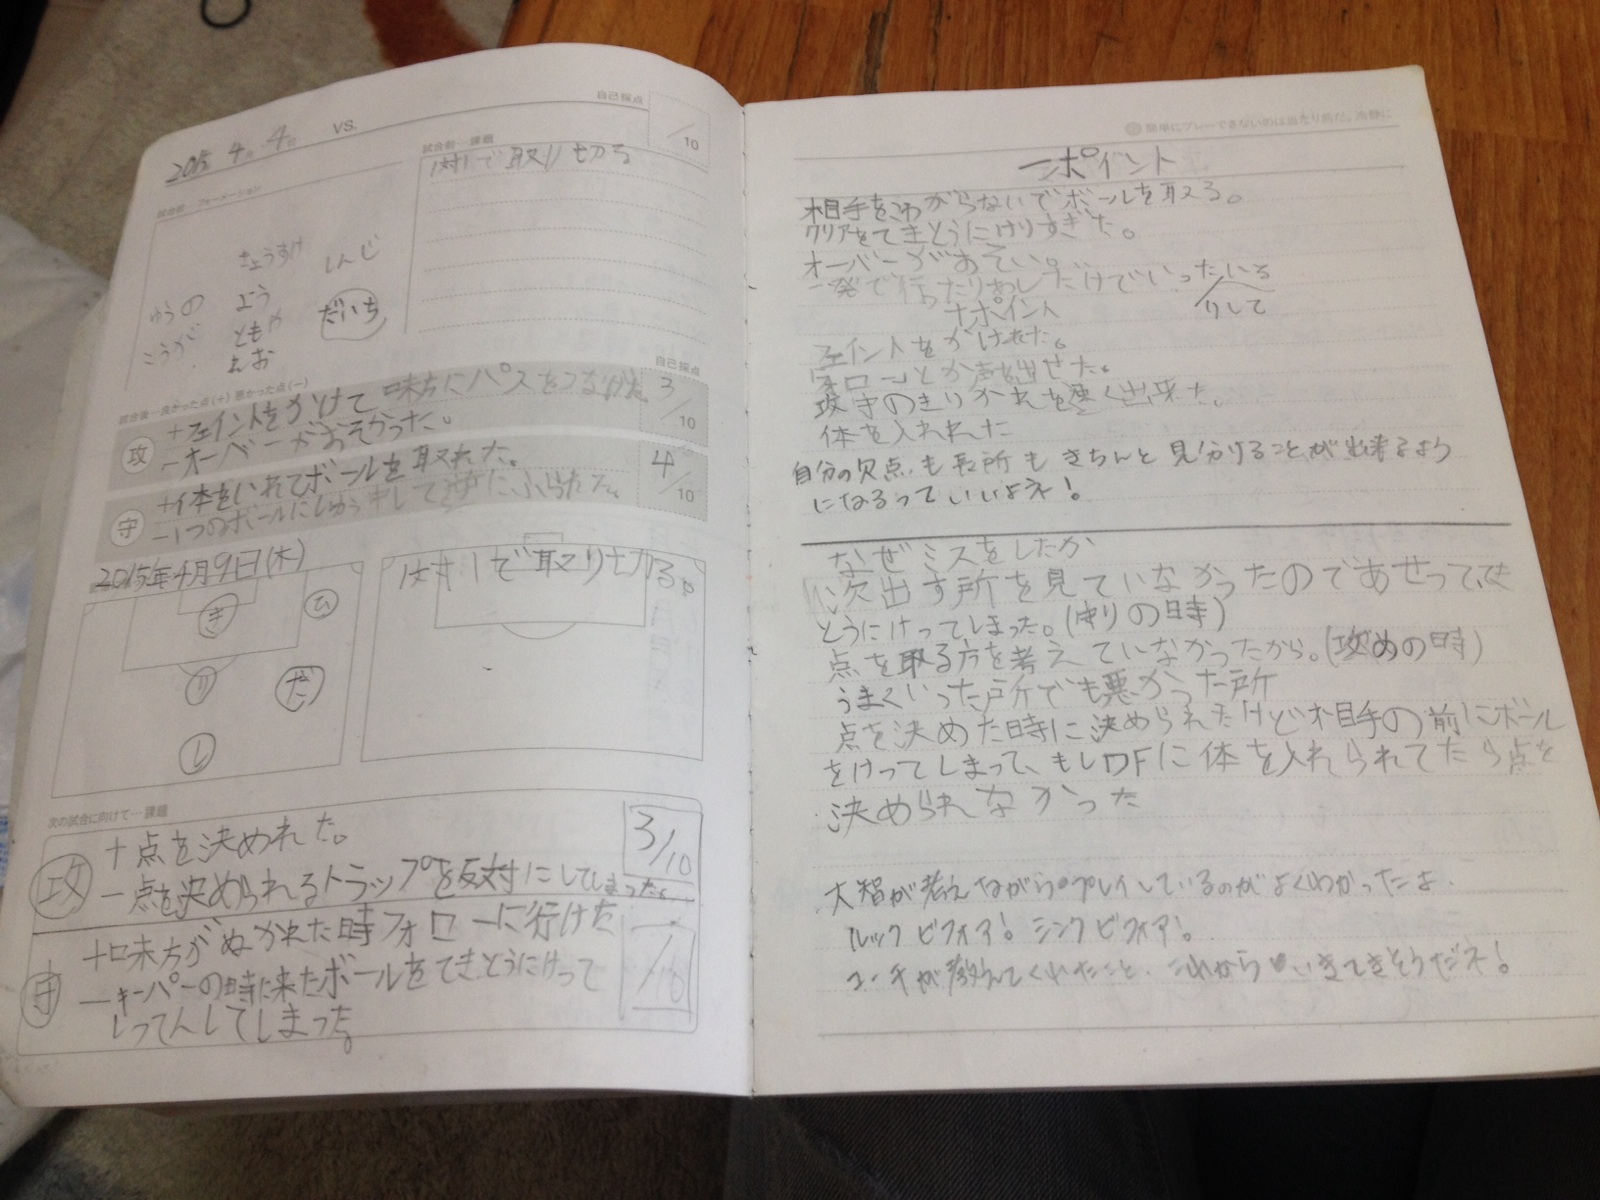 2015 4月 4日 VS.
自己採点
/10
試合前…フォーメーション
きょうすけ
しんじ
ゆうの
よう
だいち
こうが
ともや
えお
試合前…課題
1対1で取り切る
試合後…良かった点(+) 悪かった点(-)
自己採点
攻
+フェイントをかけて味方にパスをつなげた。
-オーバーがおそかった。
3/10
守
+体をいれてボールを取れた。
-1つのボールにしゅう中して逆にふられた。
4/10
2015年4月9日(木)
1対1で取り切る。
キ
ひ
り
だ
し
次の試合に向けて…課題
攻
+点を決めれた。
-点を決められるトラップを反対にしてしまった。
3/10
守
+味方がぬかれた時フォローに行けた
-キーパーの時に来たボールをてきとうにけって
しってんしてしまった。
/10
簡単にプレーできないのは当たり前だ。冷静に
-ポイント
相手をこわがらないでボールを取る。
クリアをてきとうにけりすぎた。
オーバーがおそい。
一発で行ったりあしだけでいったいる
りして
+ポイント
フェイントをかけれた。
フォローとか声を出せた。
攻守のきりかえを速く出来た。
体を入れれた
自分の欠点も長所もきちんと見分けることが出来るよう
になるっていいよネ!
なぜミスをしたか
次出す所を見ていなかったのであせって、てき
とうにけってしまった。(守りの時)
点を取る方を考えていなかったから。(攻めの時)
うまくいった所でも悪かった所
点を決めた時に決められたけど相手の前にボール
をけってしまって、もしDFに体を入れられてたら点を
決められなかった
大智が考えながらプレイしているのがよくわかったよ。
ルックビフォア! シンクビフォア!
コーチが教えてくれたこと、これからいきてきそうだネ!